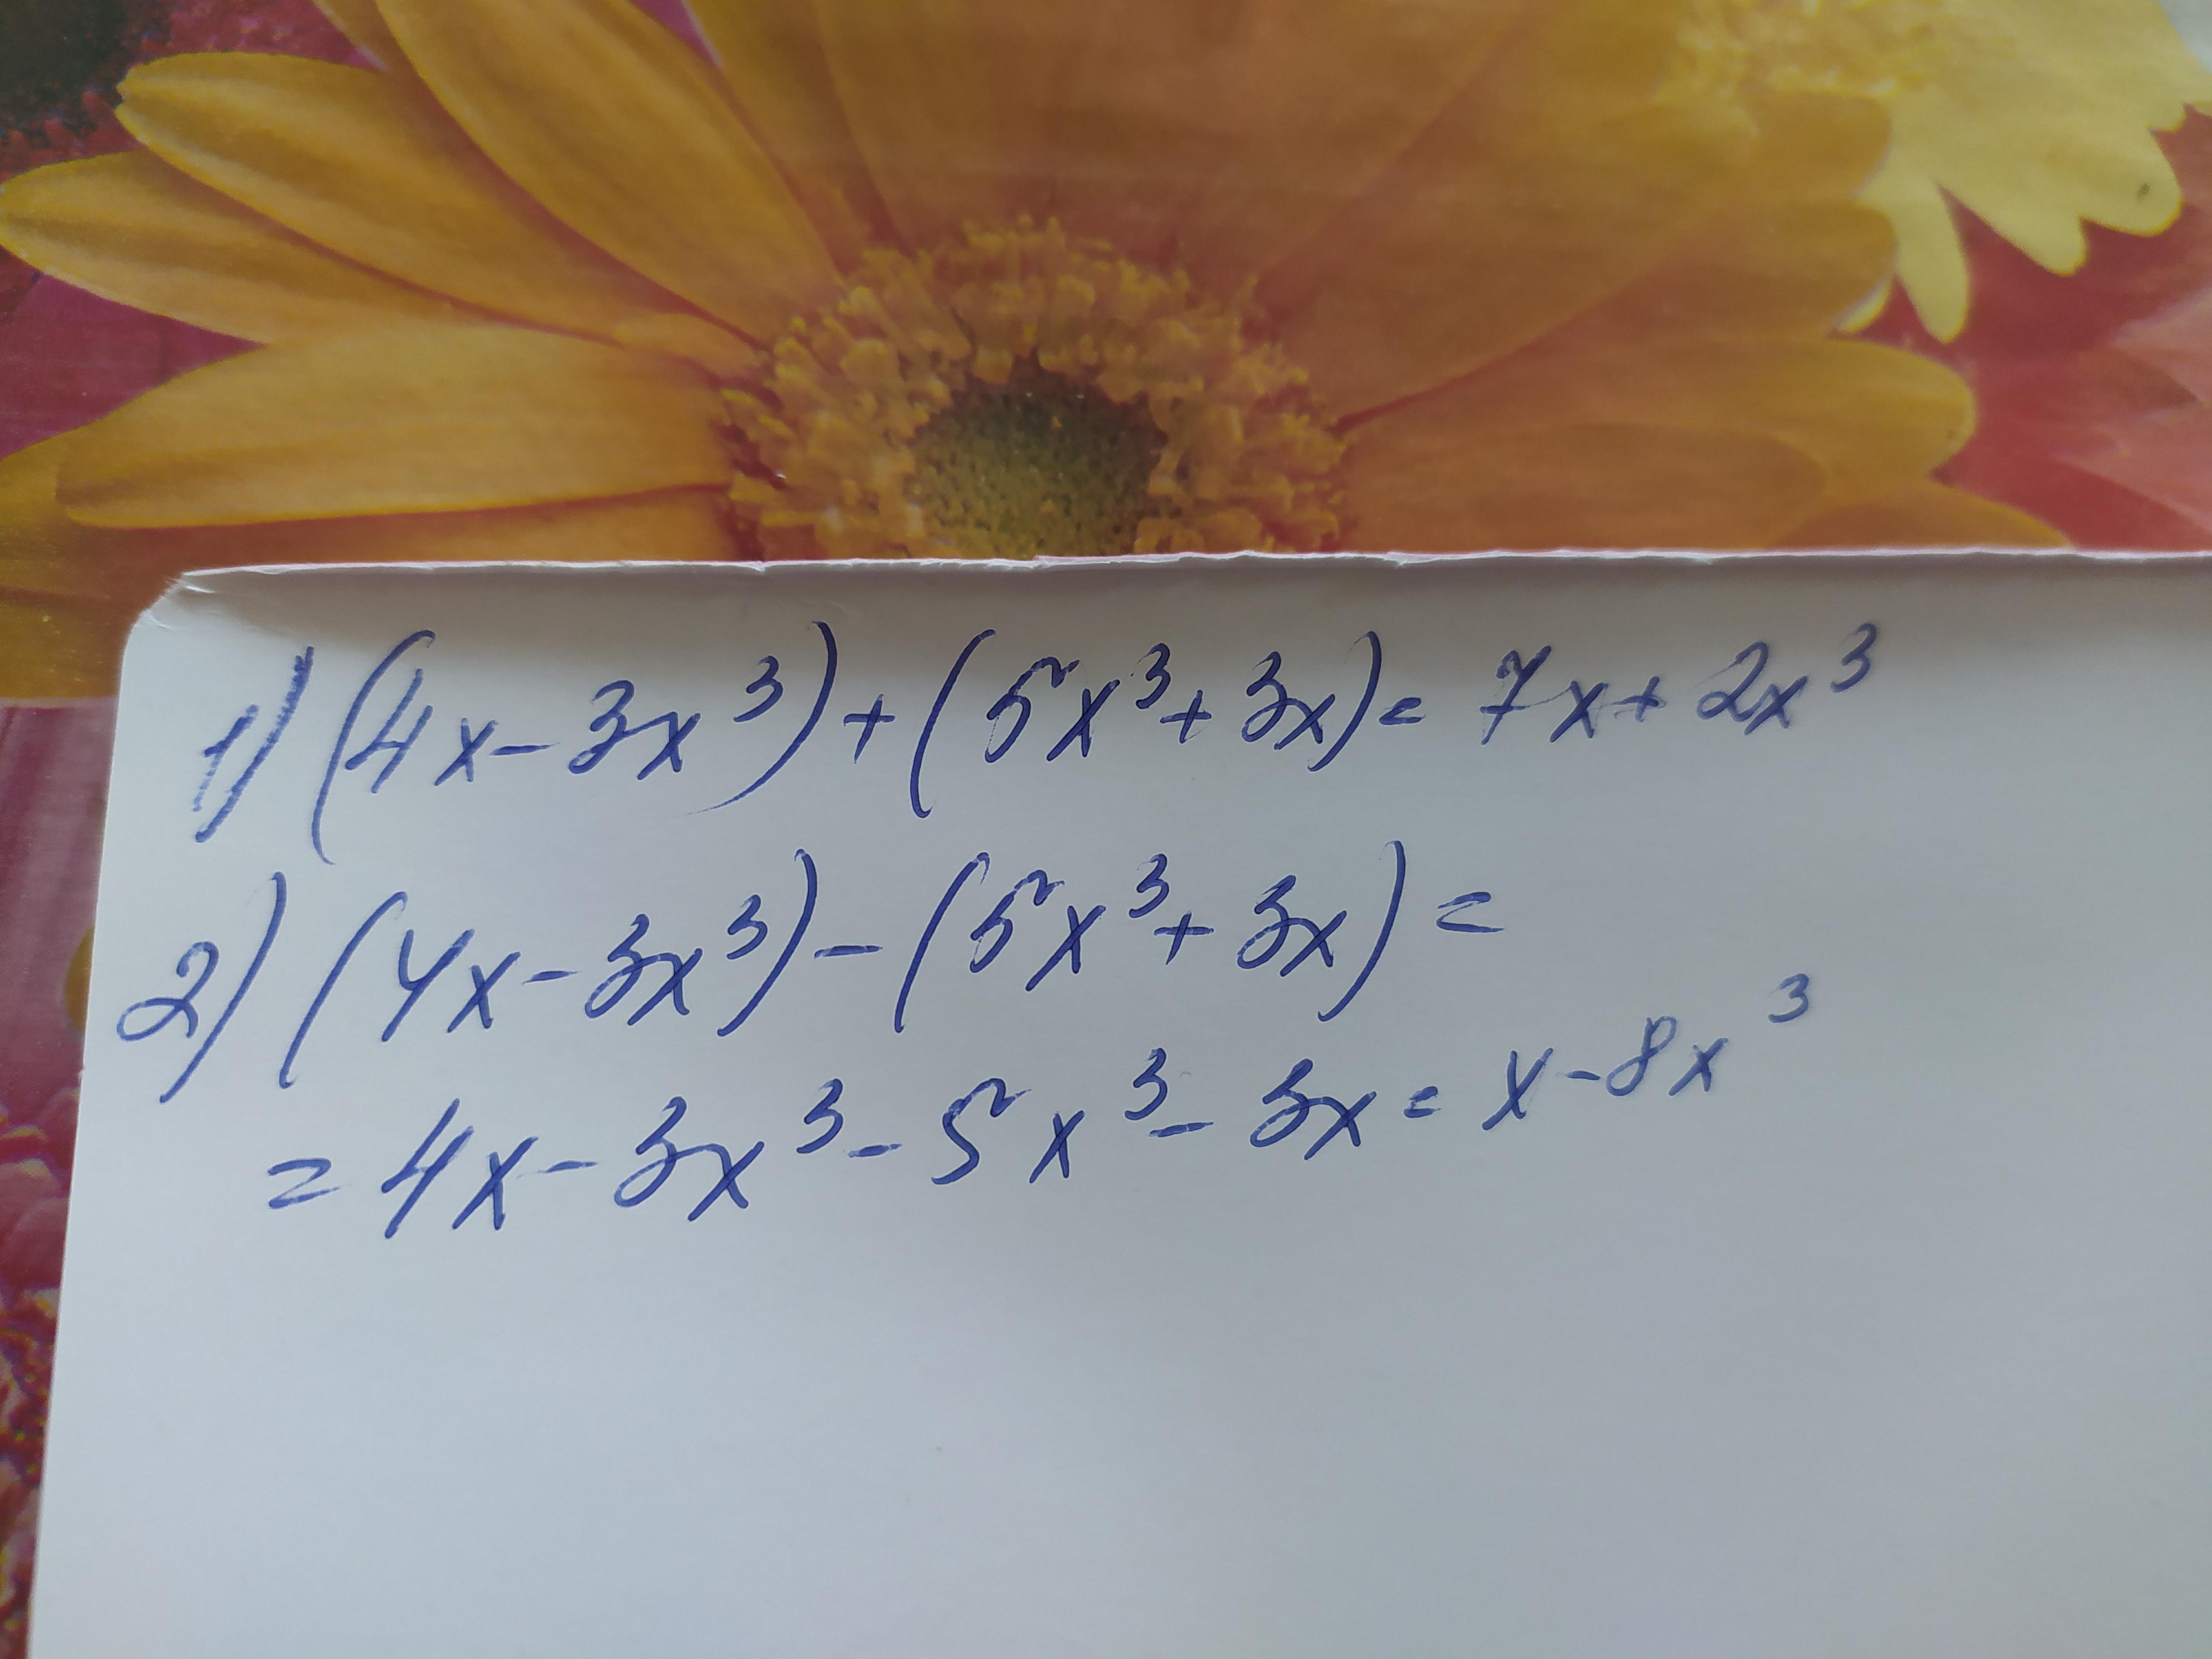 1) (4x - 3x³) + (5x³ + 3x) = 7x + 2x³
2) (4x - 3x³) - (5x³ + 3x) =
= 4x - 3x³ - 5x³ - 3x = x - 8x³